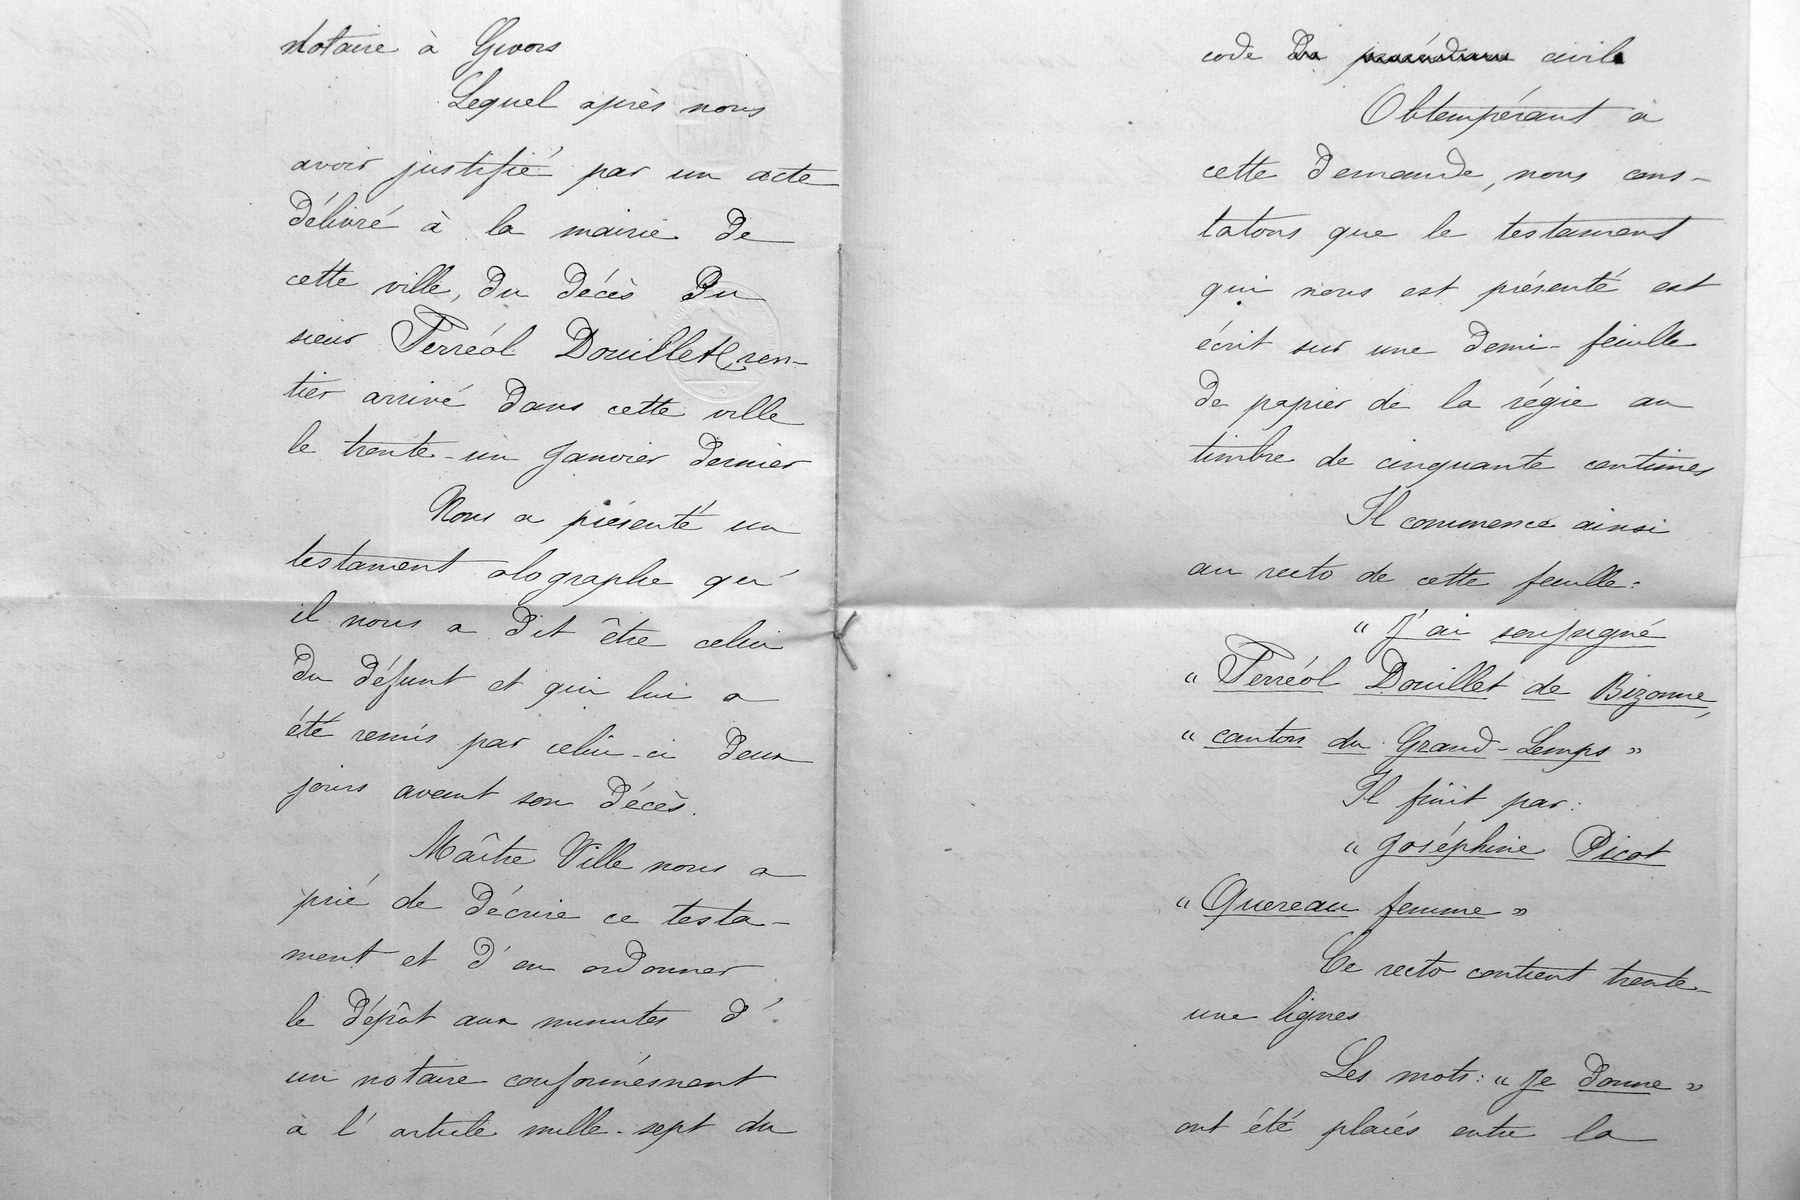 notaire à Givors
Lequel après nous
avoir justifié par un acte
délivré à la mairie de
cette ville, du décès du
sieur Ferréol Douillet, ren-
tier arrivé dans cette ville
le trente-un Janvier dernier
Nous a présenté un
testament olographe qu'
il nous a dit être celui
du défunt et qui lui a
été remis par celui-ci deux
jours avant son décès.
Maître Ville nous a
prié de décrire ce testa-
ment et d'en ordonner
le dépôt aux minutes d'
un notaire conformément
à l'article mille-sept du
code de procédure civile
Obtempérant à
cette demande, nous cons-
tatons que le testament
qui nous est présenté est
écrit sur une demi-feuille
de papier de la régie au
timbre de cinquante centimes
Il commence ainsi
au recto de cette feuille:
" J'ai soussigné
" Ferréol Douillet de Bizonne,
" canton du Grand-Lemps "
Il finit par:
" Joséphine Picot
" Quereau femme "
Ce recto contient trente-
une lignes
Les mots: " Je donne "
ont été placés entre la